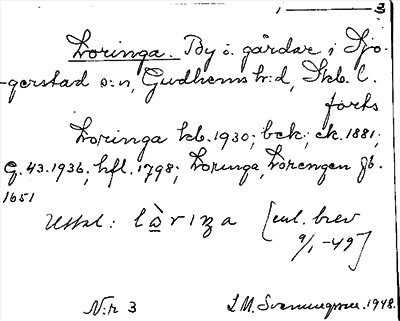 1 — 3
Loringa. By o. gårdar i Sjo-
gerstad s:n, Gudhems h:d, Skb. l.
forts
Loringa kb. 1930; bek; ek. 1881;
G. 43. 1936; hfl. 1798; Loringa, Lorengen jb.
1651
Uttal: l
[enl. brev
9/1 -49]
N:r 3 1948.